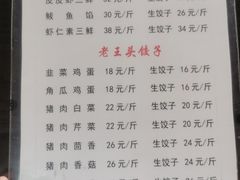 皮皮虾三鲜 32 元/斤 生饺子 28 元/斤
鲅 鱼 馅 30 元/斤 生饺子 26 元/斤
虾仁素三鲜 38 元/斤 生饺子 34 元/斤
老王头饺子
韭菜鸡蛋 18 元/斤 生饺子 16 元/斤
角瓜鸡蛋 18 元/斤 生饺子 16 元/斤
猪肉白菜 22 元/斤 生饺子 20 元/斤
猪肉芹菜 22 元/斤 生饺子 20 元/斤
猪肉茴香 26 元/斤 生饺子 24 元/斤
猪肉香菇 26 元/斤 生饺子 24 元/斤